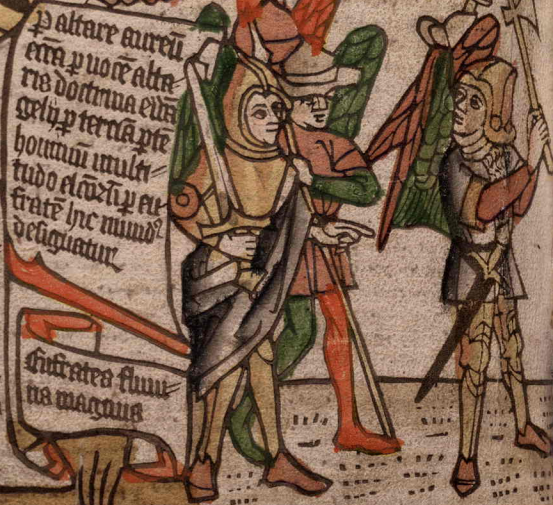 ꝑ altare aureū
ecc̄a ꝑ uocē alta-
ris doctrina ewā
gelij ꝑ terciā ꝑtē
hominū multi-
tudo elc̄oꝝ ꝑ eu
fratē hic mundꝰ
designatur
Eufrates fluui-
us magnus